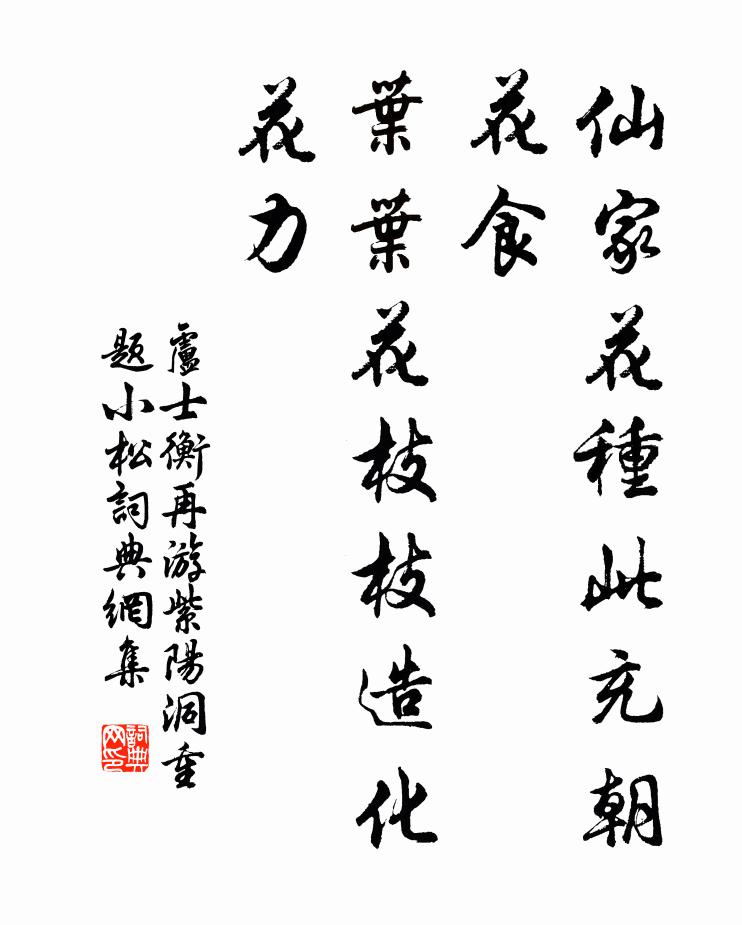 仙家花種此充朝
花食
葉葉花枝枝造化
花力
盧士衡再游紫陽洞重
題小松詞典網集
詞典
网印